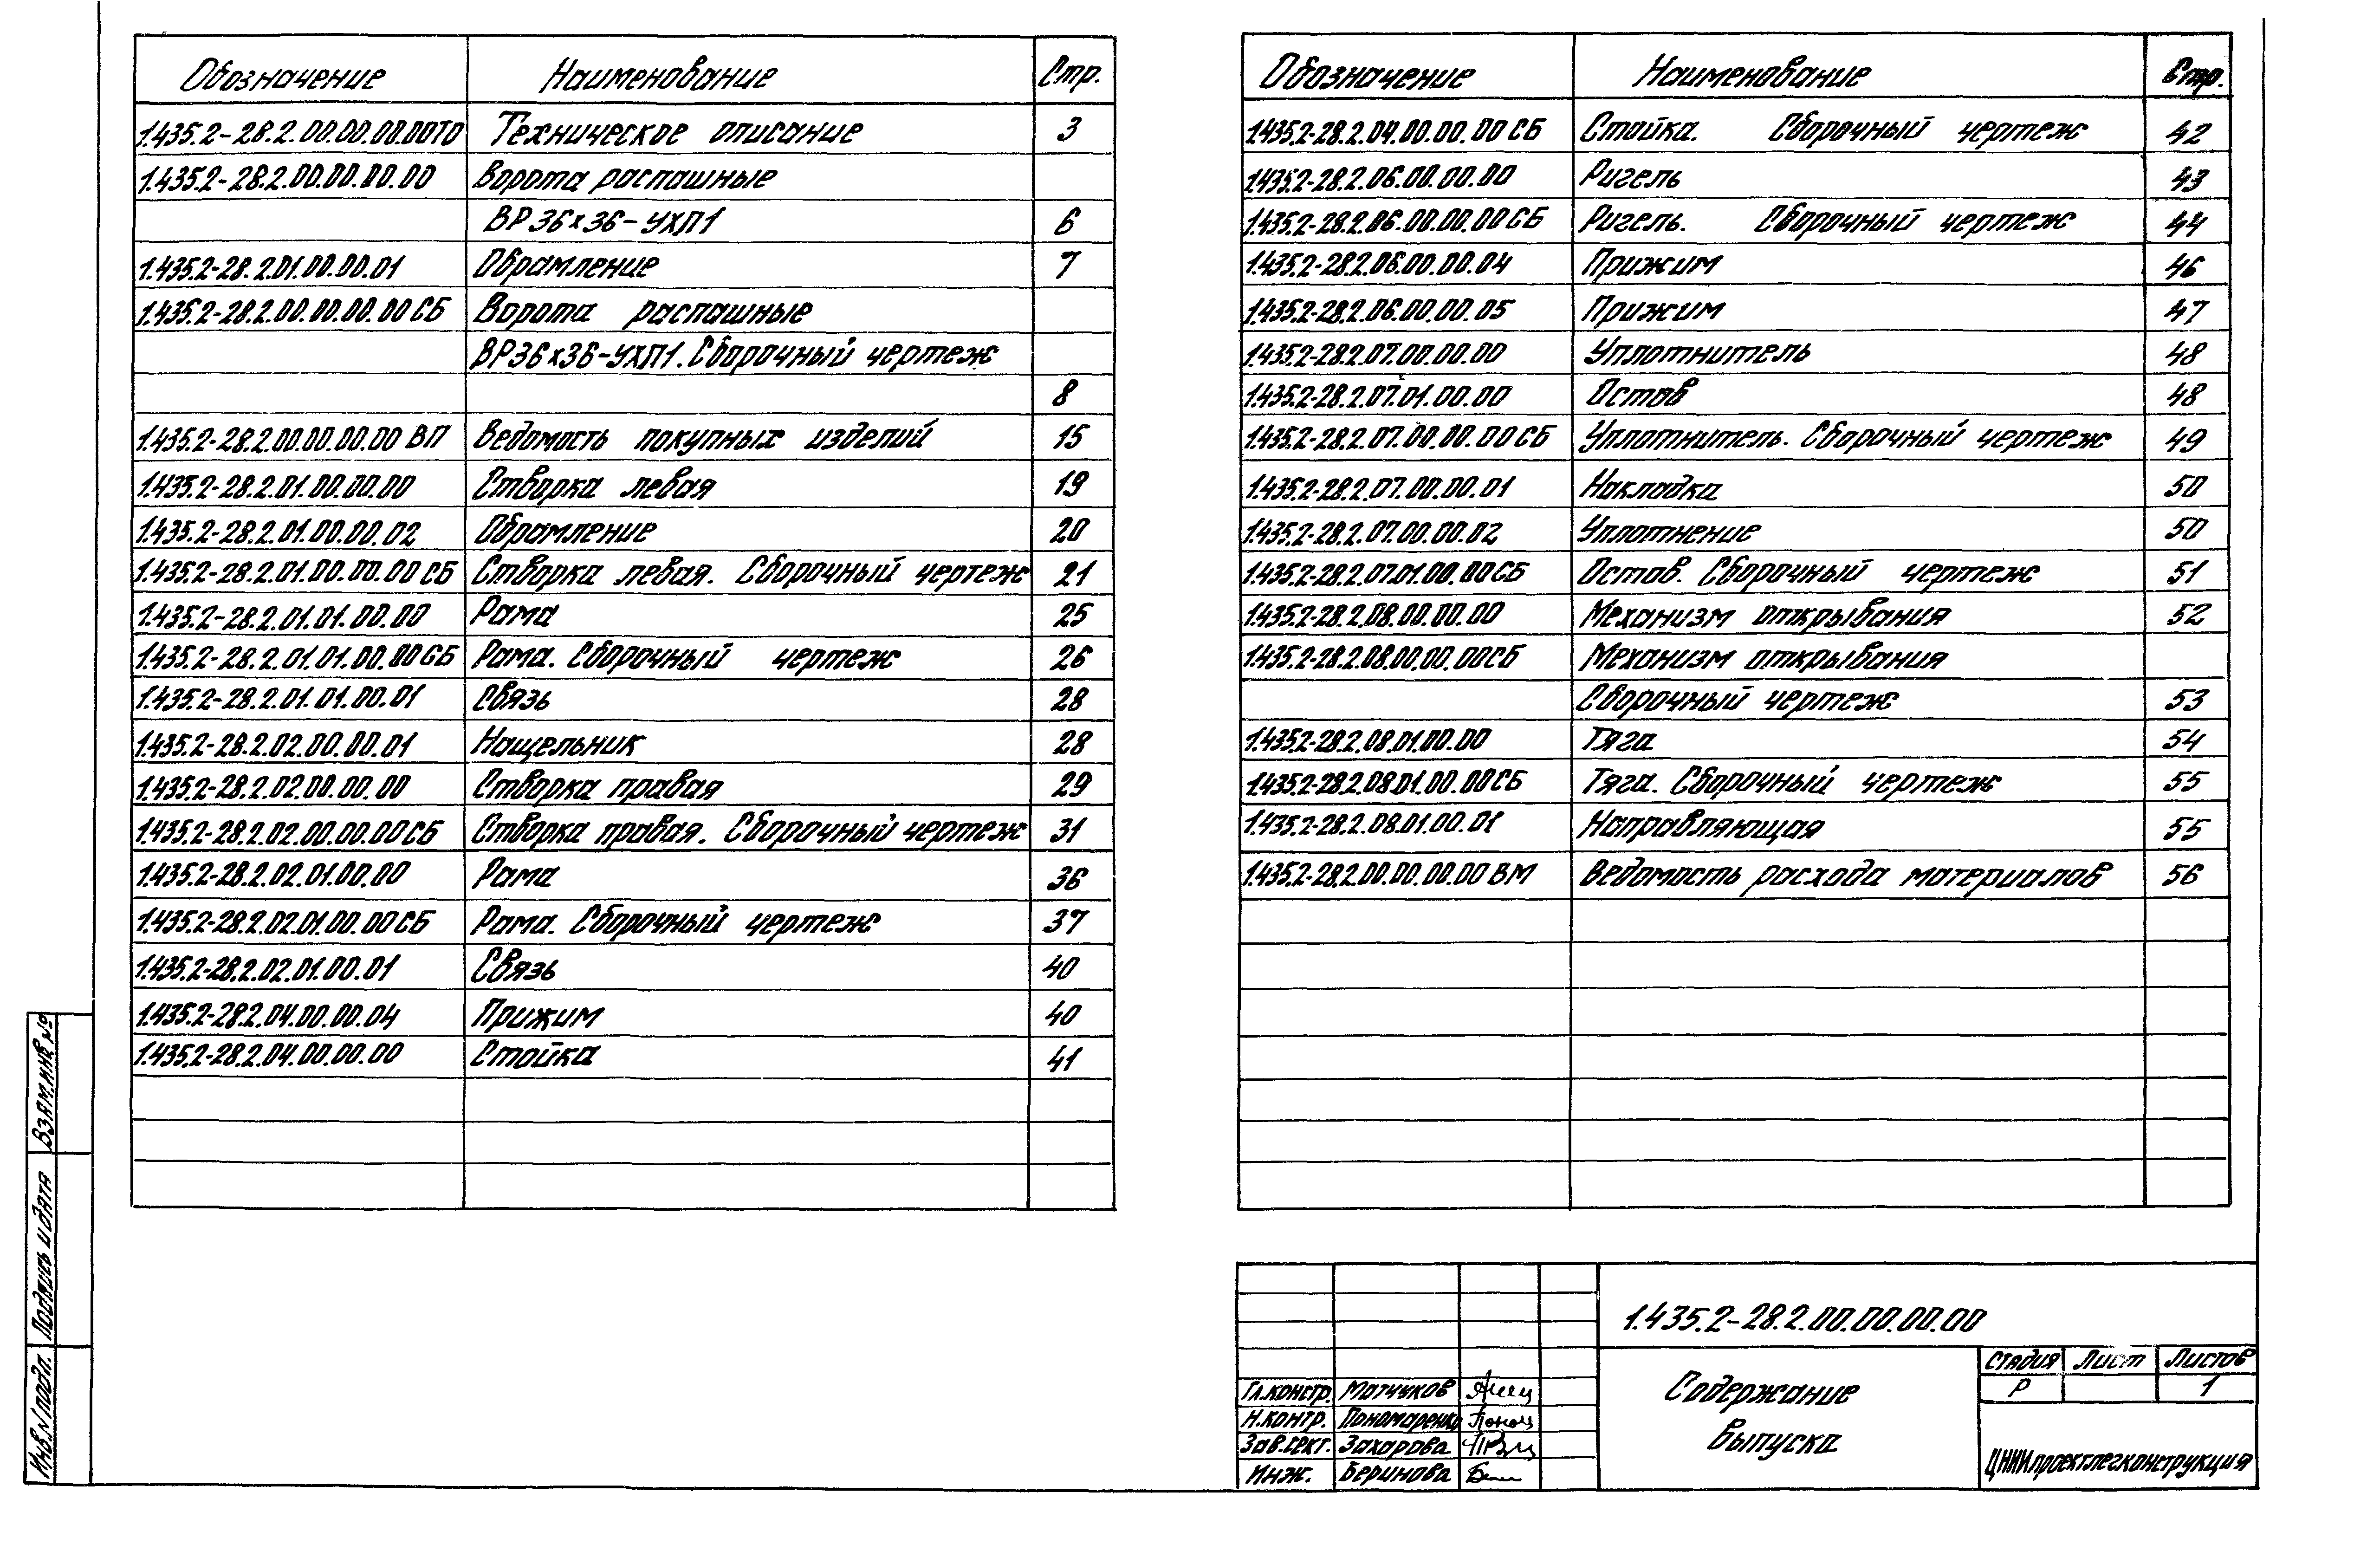 Обозначение Наименование Стр.
1.435.2-28.2.00.00.00.00ТО Техническое описание 3
1.435.2-28.2.00.00.00.00 Ворота распашные
ВР36х36-УХЛ1 6
1.435.2-28.2.01.00.00.01 Обрамление 7
1.435.2-28.2.00.00.00.00СБ Ворота распашные
ВР36х36-УХЛ1. Сборочный чертеж
8
1.435.2-28.2.00.00.00.00 ВП Ведомость покупных изделий 15
1.435.2-28.2.01.00.00.00 Створка левая 19
1.435.2-28.2.01.00.00.02 Обрамление 20
1.435.2-28.2.01.00.00.00СБ Створка левая. Сборочный чертеж 21
1.435.2-28.2.01.01.00.00 Рама 25
1.435.2-28.2.01.01.00.00СБ Рама. Сборочный чертеж 26
1.435.2-28.2.01.01.00.01 Связь 28
1.435.2-28.2.02.00.00.01 Нащельник 28
1.435.2-28.2.02.00.00.00 Створка правая 29
1.435.2-28.2.02.00.00.00СБ Створка правая. Сборочный чертеж 31
1.435.2-28.2.02.01.00.00 Рама 36
1.435.2-28.2.02.01.00.00СБ Рама. Сборочный чертеж 37
1.435.2-28.2.02.01.00.01 Связь 40
1.435.2-28.2.04.00.00.04 Прижим 40
1.435.2-28.2.04.00.00.00 Стойка 41
Обозначение Наименование Стр.
1.435.2-28.2.04.00.00.00СБ Стойка. Сборочный чертеж 42
1.435.2-28.2.06.00.00.00 Ригель 43
1.435.2-28.2.06.00.00.00СБ Ригель. Сборочный чертеж 44
1.435.2-28.2.06.00.00.04 Прижим 46
1.435.2-28.2.06.00.00.05 Прижим 47
1.435.2-28.2.07.00.00.00 Уплотнитель 48
1.435.2-28.2.07.01.00.00 Остов 48
1.435.2-28.2.07.00.00.00СБ Уплотнитель. Сборочный чертеж 49
1.435.2-28.2.07.00.00.01 Накладка 50
1.435.2-28.2.07.00.00.02 Уплотнение 50
1.435.2-28.2.07.01.00.00СБ Остов. Сборочный чертеж 51
1.435.2-28.2.08.00.00.00 Механизм открывания 52
1.435.2-28.2.08.00.00.00СБ Механизм открывания
Сборочный чертеж 53
1.435.2-28.2.08.01.00.00 Тяга 54
1.435.2-28.2.08.01.00.00СБ Тяга. Сборочный чертеж 55
1.435.2-28.2.08.01.00.01 Направляющая 55
1.435.2-28.2.00.00.00.00 ВМ Ведомость расхода материалов 56
Взам.инв.№
Подпись и дата
Инв.№подл.
1.435.2-28.2.00.00.00.00
Содержание
выпуска
Стадия Лист Листов
Р 1
ЦНИИпроектлегконструкция
Гл.констр. Матчуков
Н.контр. Пономаренко
Зав.сект. Захарова
Инж. Беринова